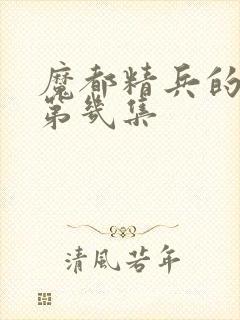 魔都精兵的
第幾集
清風若年